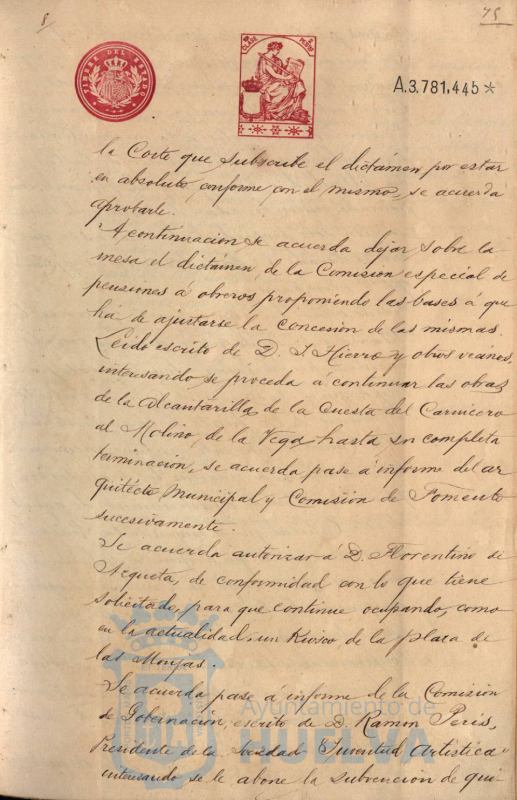 8
75
TIMBRE DEL ESTADO
A.3.781,445*
la Corte que subscribe el dictámen por estar
en absoluto, conforme con el mismo, se acuerda
aprobarle.
A continuación se acuerda dejar sobre la
mesa el dictámen de la Comisión especial de
pensiones á obreros proponiendo las bases á que
há de ajustarse la concesión de las mismas.
Leido escrito de D. J. Hierro y otros vecinos,
interesando se proceda á continuar las obras
de la Alcantarilla, de la Cuesta del Carnicero
al Molino de la Vega hasta su completa
terminación, se acuerda pase á informe del ar
quitecto Municipal y Comisión de Fomento
sucesivamente.
Se acuerda autorizar á D. Florentino de
Azqueta, de conformidad con lo que tiene
solicitado, para que continue ocupando, como
en la actualidad, un Kiosco de la plaza de
las Monjas.
Se acuerda pase á informe de la Comisión
de Gobernación, escrito de D. Ramon Peris,
Presidente de la Sociedad "Juventud Artística"
interesando se le abone la subvención de qui-
Ayuntamiento de
HUELVA